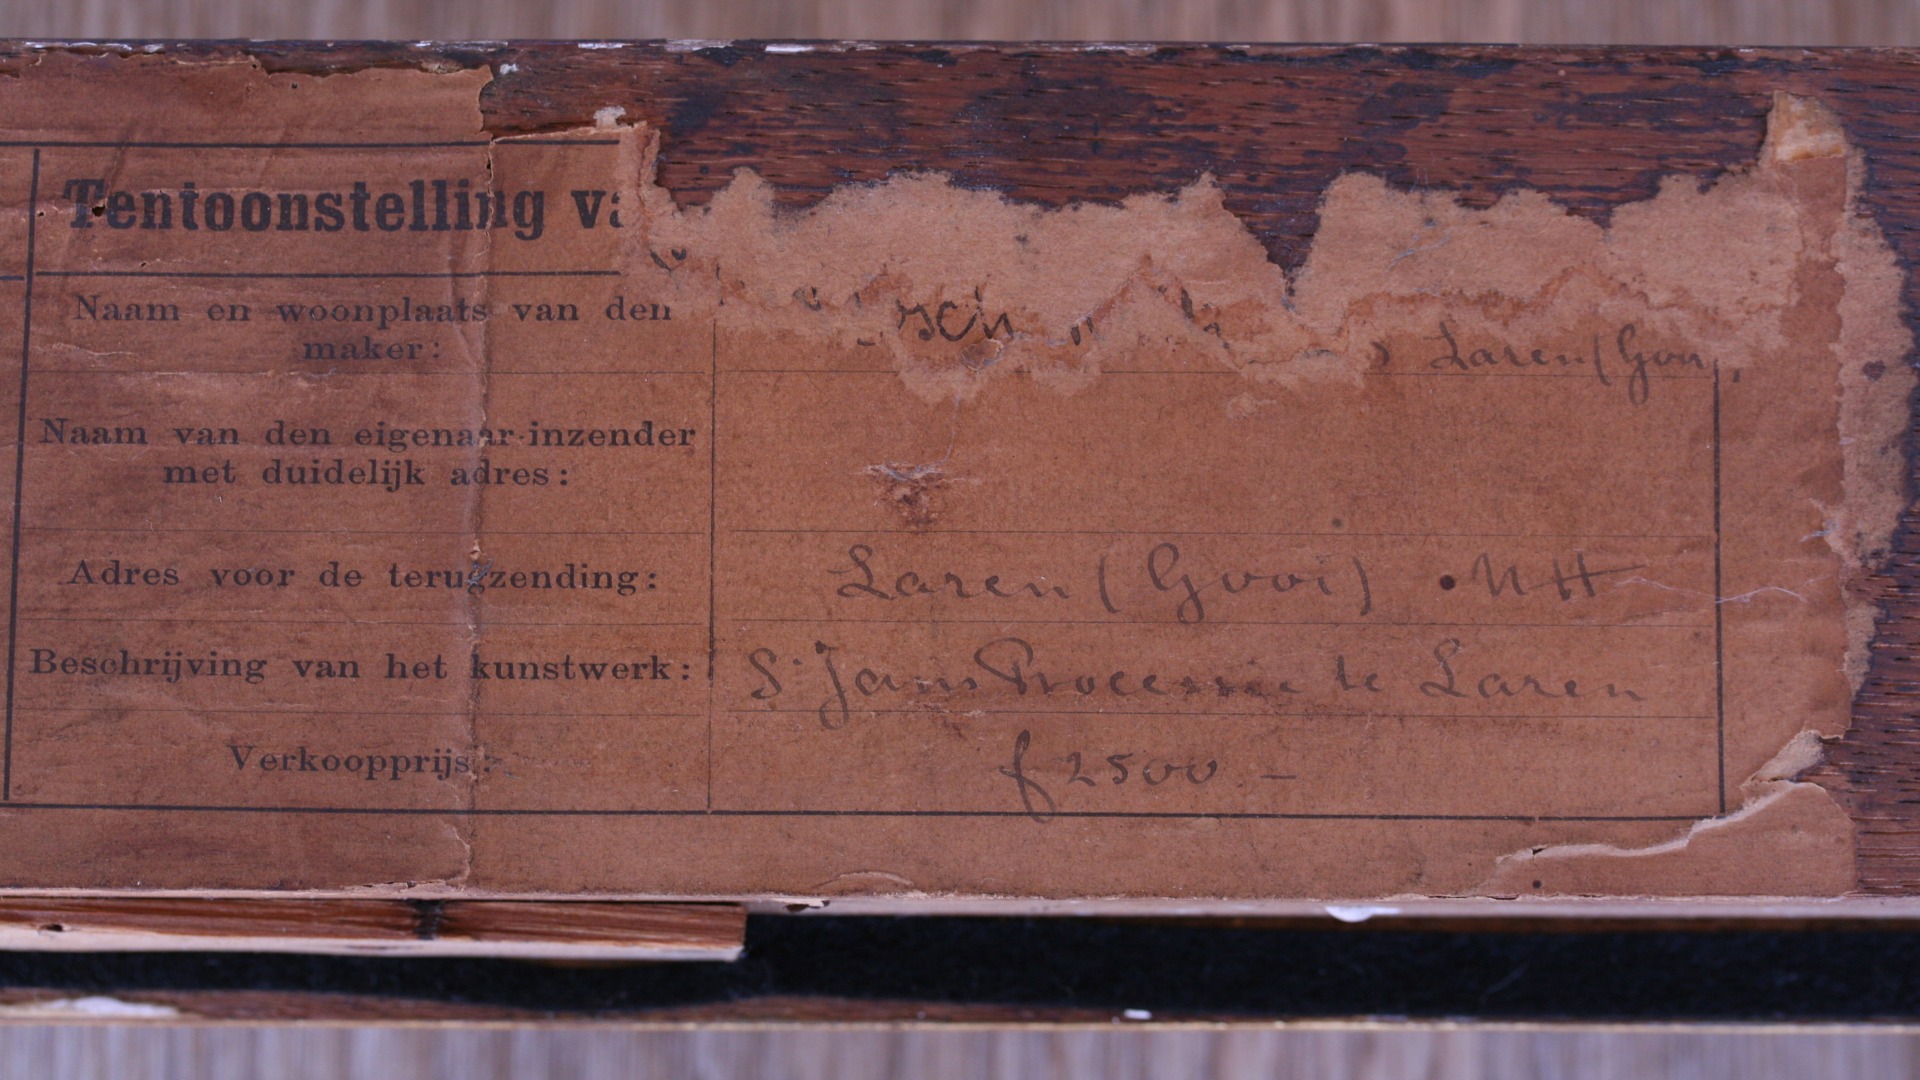 Tentoonstelling va
Naam en woonplaats van den
maker:
Laren (Gooi
Naam van den eigenaar-inzender
met duidelijk adres:
Adres voor de terugzending: Laren (Gooi) . NH
Beschrijving van het kunstwerk: St Jans Processie te Laren
Verkoopprijs: f 2500 -